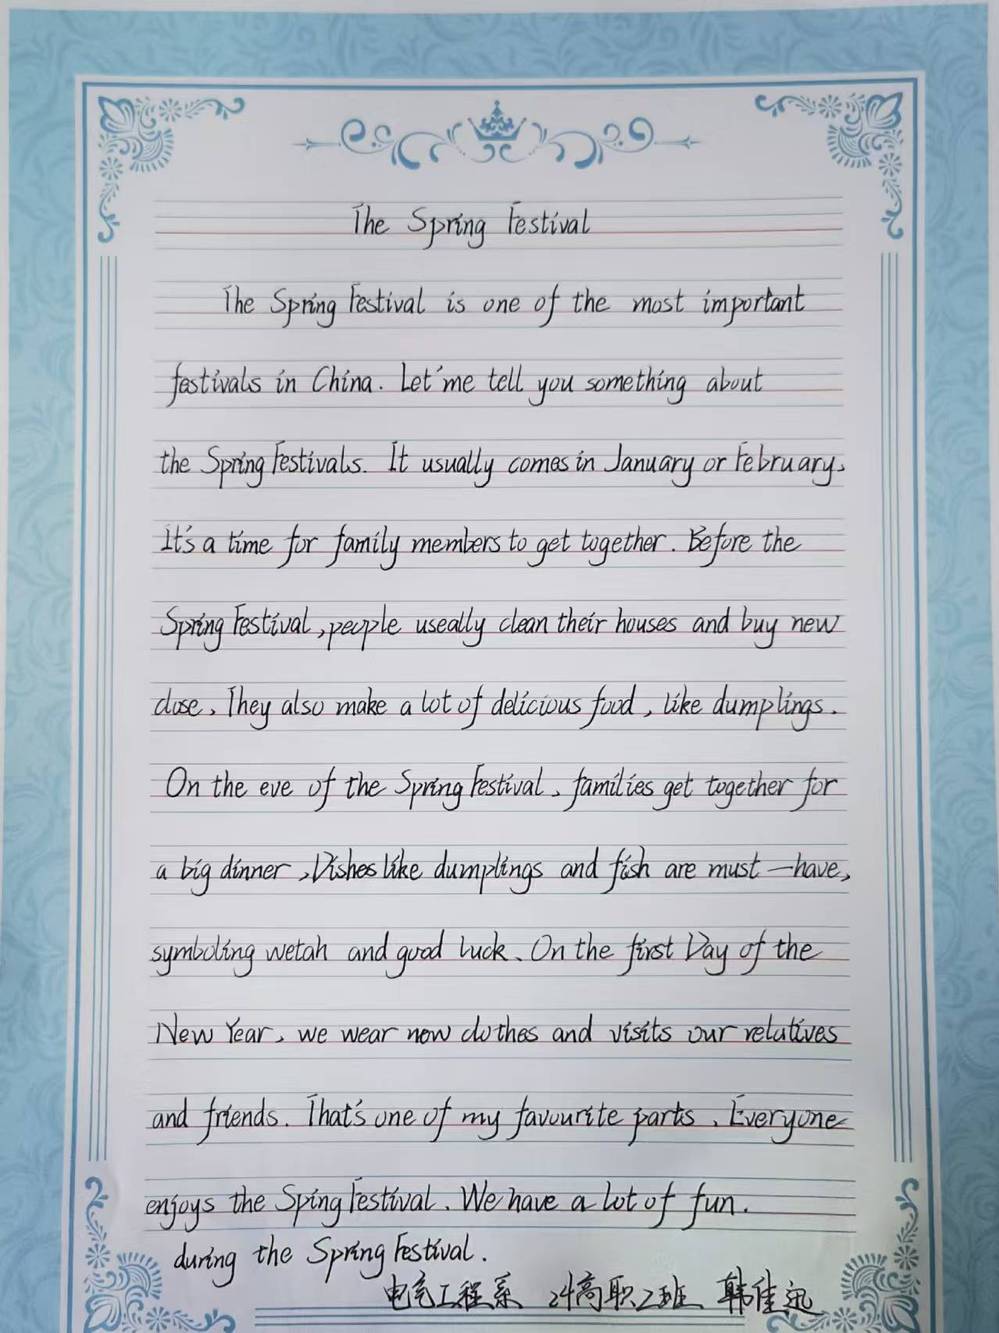 The Spring Festival
The Spring Festival is one of the most important
festivals in China. Let'me tell you something about
the Spring Festivals. It usually comes in January or February,
It's a time for family members to get together. Before the
Spring Festival, people useally clean their houses and buy new
close, They also make a lot of delicious food, like dumplings.
On the eve of the Spring Festival, families get together for
a big dinner, Dishes like dumplings and fish are must-have,
symboling wetah and good luck. On the first Day of the
New Year, we wear now clothes and visits our relatives
and friends. That's one of my favourite parts. Everyone
enjoys the Sping Festival. We have a lot of fun.
during the Spring Festival.
电气工程系 24高职2班 韩佳迅